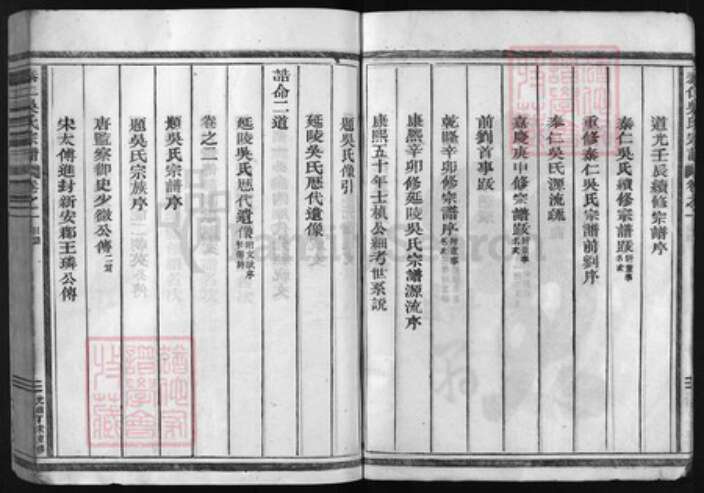 道光壬辰續修宗譜序
泰仁吳氏續修宗譜跋 附董事名氏
重修泰仁吳氏宗譜前劉序
泰仁吳氏源流疏
嘉慶庚申修宗譜跋 附董事名氏
前劉首事跋
乾隆辛卯修宗譜序 附董事名氏
康熙辛卯修延陵吳氏宗譜源流序
康熙五十年士楨公細考世系說
題吳氏像引
延陵吳氏歷代遺像
誥命二道
延陵吳氏歷代遺像
卷之二
類吳氏宗譜序
題吳氏宗族序
唐監察御史少微公傳 二篇
宋太傅進封新安郡王璘公傳
泰仁吳氏宗譜 卷之一